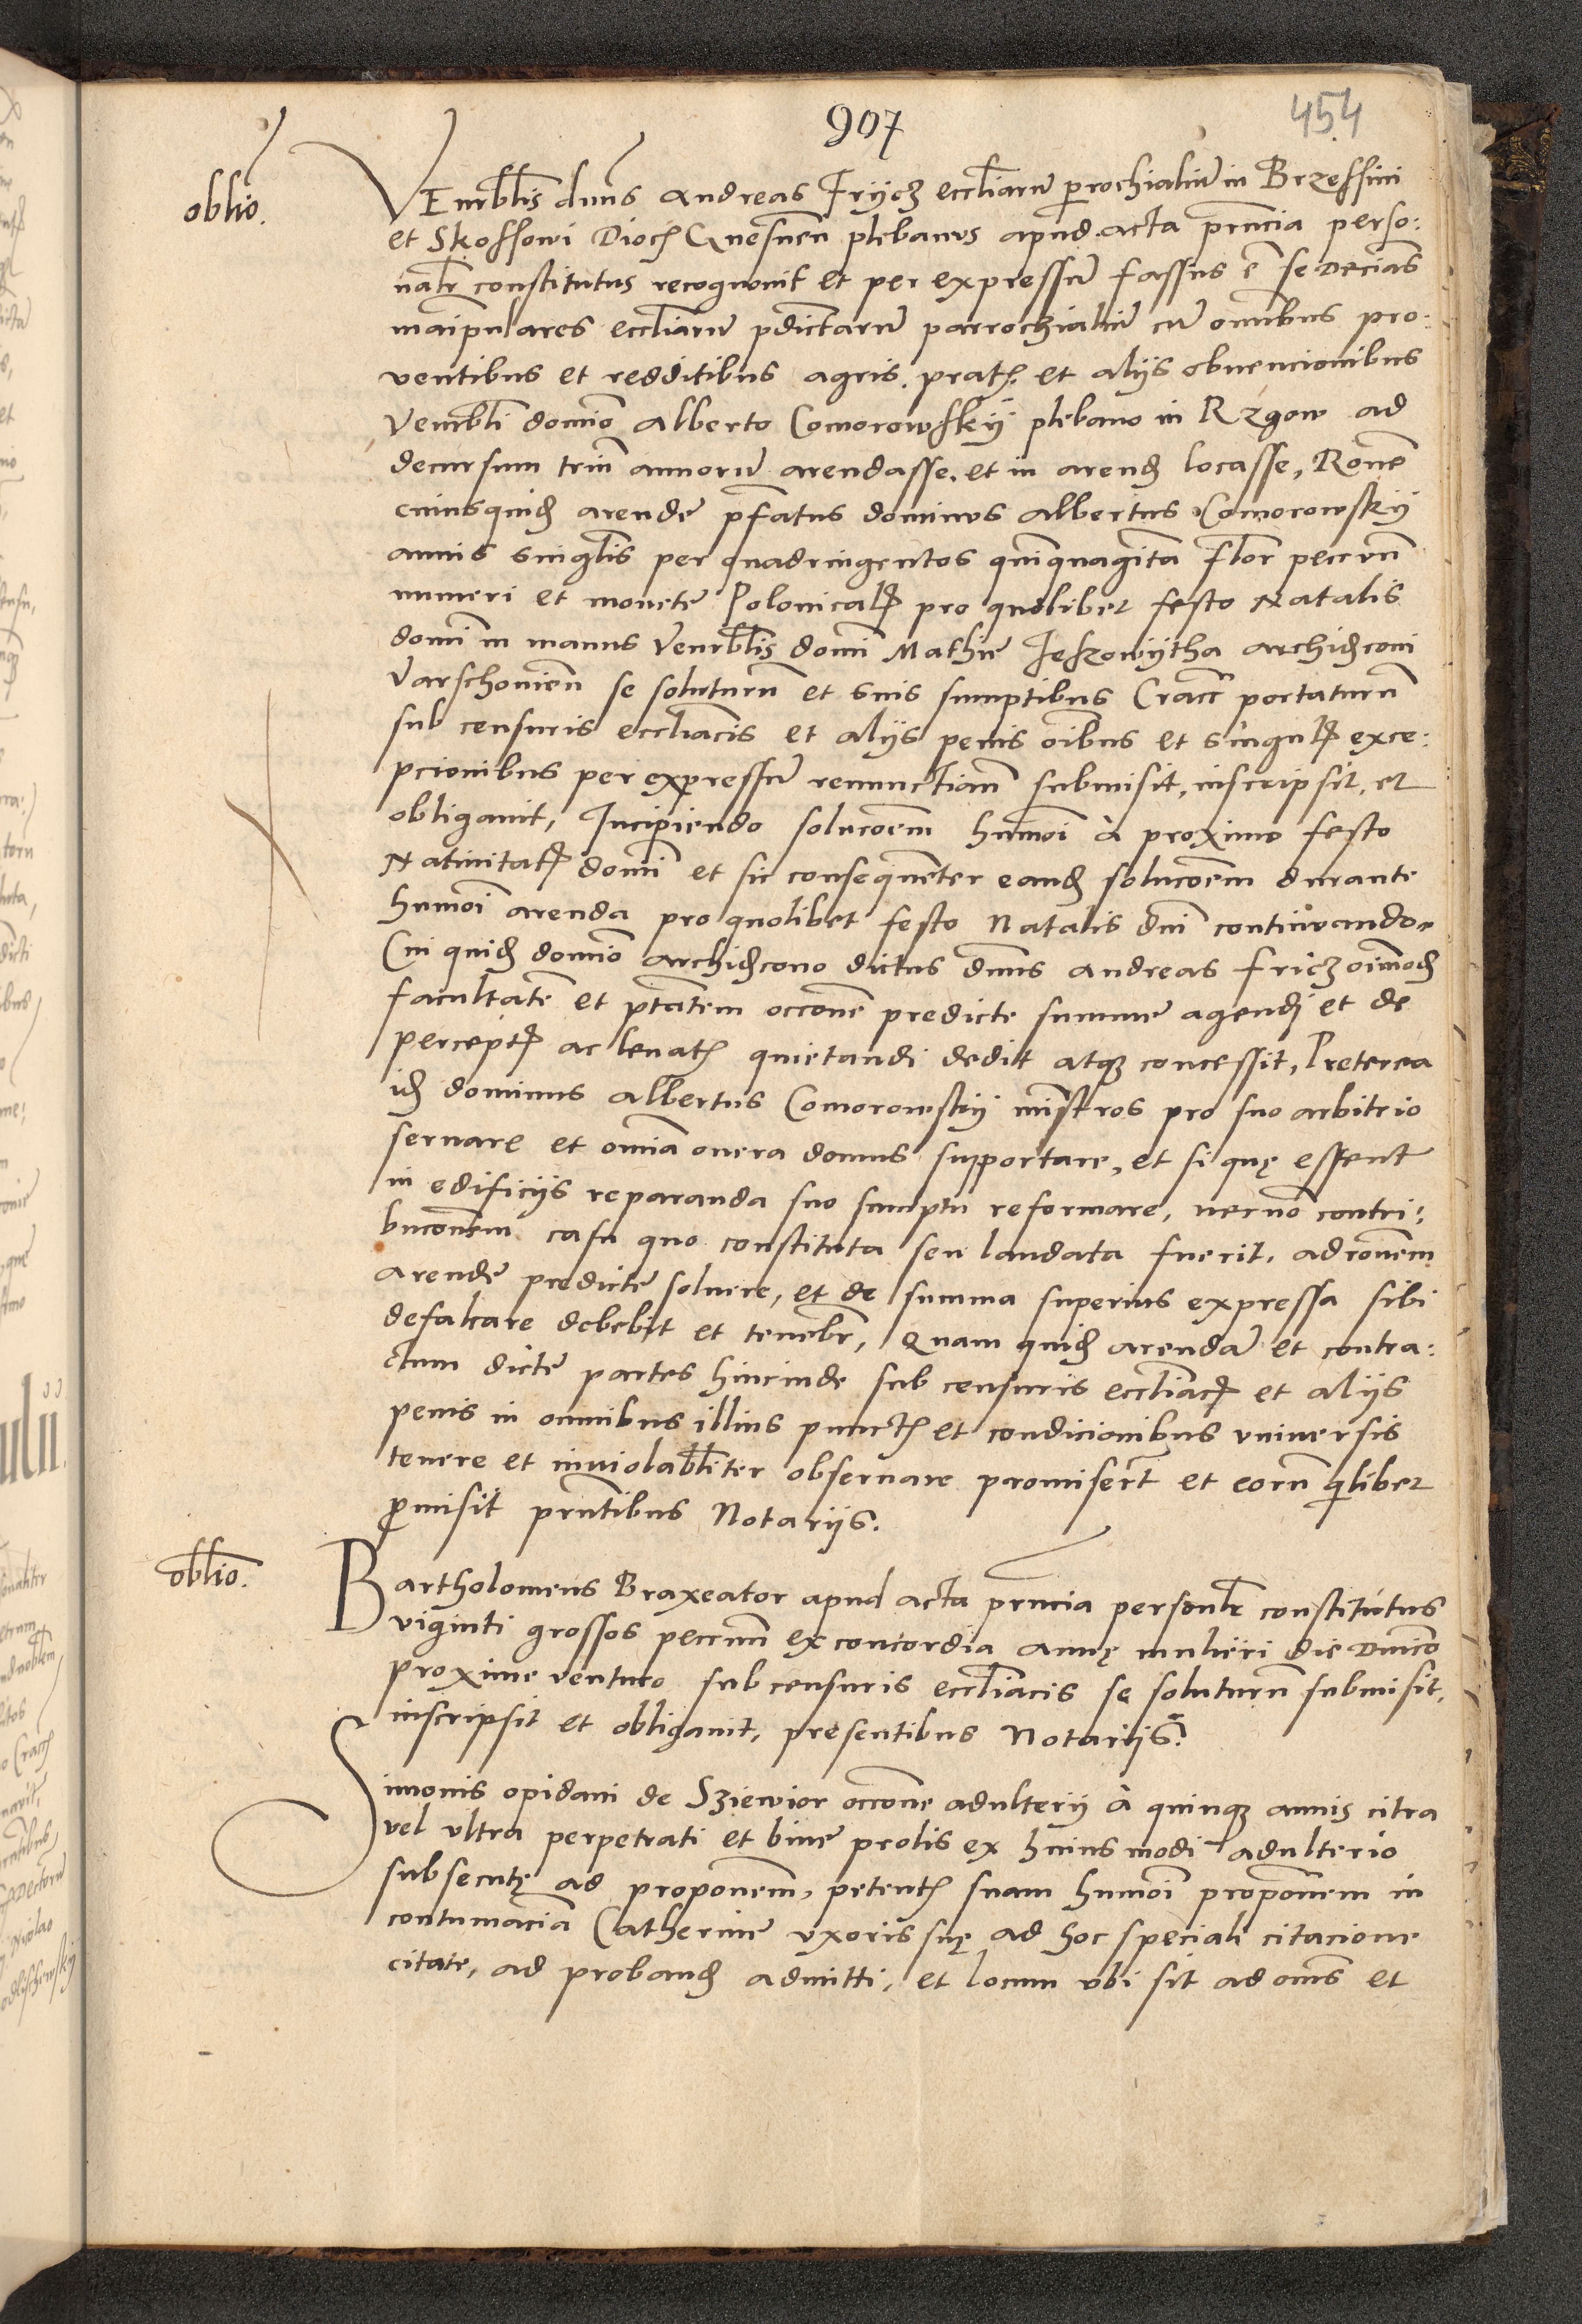 907
454
oblio.
VEnrblis dnus Andreas Frycz eccliaru parochialiu in Brzessini
et Skossowi Dioc Gnesnen plebanus apud acta prncia perso:
nalr constitutus recognovit et per expressu fassus e se decias
maipulares eccliaru pdictaru parrochialiu cu omnibus pro:
ventibus et redditibus agris. prat. et alijs obuencionibus
Venrbli domio Alberto Comorowskij plebano in Rzgow ad
decursum triu annoru arendasse. et in arend locasse, Rone
cuiusquid arende pfatus dominus Albertus Comorowskij
annis singlis per quadringentos quinquaginta flor peccun
numeri et monete Polonical pro quolibet festo Natalis
domi in manus Venrblis domi Mathie Jeszowijtha archidconi
Varschovien se soluturu et suis sumptibus Cracc portaturu
sub censuris eccliacis et alijs penis oibus et singul exce:
pcionibus per expressu renunctian submisit, inscripsit, et
obligauit, Incipiendo solucoem hmoi à proximo festo
Natiuitat domi et sic consequenter eand solucoem durante
humoi arenda pro quolibet festo Natalis dni continuando.
Cui quid domio archidcono dictus dnus Andreas fricz oimod
facultate et ptatem occone predicte summe agendi et de
percept ac leuat quietandi dedit atq concessit, Preterea
id dominus Albertus Comorowskij mistros pro suo arbitrio
seruare et omia onera domus supportare, et si quę essent
in edificijs reparanda suo sumptu reformare, necno contri:
bucoem casu quo constituta seu laudata fuerit, ad ronem
arende predicte soluere, et de summa superius expressa sibi
defalcare debebit et tenebr, Quam quid arenda et contra:
ctum dicte partes hincinde sub censuris eccliac et alijs
penis in omnibus illius punct et condicionibus vniuersis
tenere et inuiolabliter obseruare promisert et eoru qlibet
pmisit prntibus Notarijs.
oblio.
Bartholomeus Braxeator apud acta prncia personlr constitútus
viginti grossos peccun ex concordia annę mulieri die dnico
proxime venturo sub censuris eccliacis se soluturu submisit,
inscripsit et obligauit, presentibus Notarijs.
Simonis opidani de Sziewior occone adulterij à quinq annis citra
vel vltra perpetrati et bine prolis ex huiusmodi adulterio
subsecutę ad proponem, petent suam humoi proponem in
contumacia Catherine vxoris suę ad hoc speciali citacione
citate, ad proband admitti, et locum vbi sit ad oms et